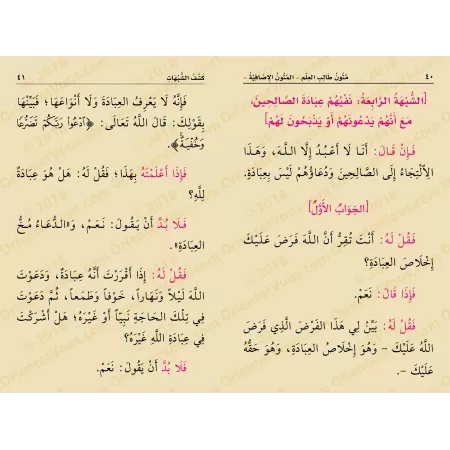 ٤٠ مُتُونُ طَالِبِ العِلْمِ - المُتُونُ الإِضَافِيَّةُ -
[الشُّبْهَةُ الرَّابِعَةُ: نَفْيُهُمْ عِبَادَةَ الصَّالِحِينَ،
مَعَ أَنَّهُمْ يَدْعُونَهُمْ أَوْ يَذْبَحُونَ لَهُمْ]
فَإِنْ قَالَ: أَنَا لَا أَعْبُدُ إِلَّا اللَّهَ، وَهَذَا
الِالْتِجَاءُ إِلَى الصَّالِحِينَ وَدُعَاؤُهُمْ لَيْسَ بِعِبَادَةٍ.
[الجَوَابُ الأَوَّلُ]
فَقُلْ لَهُ: أَنْتَ تُقِرُّ أَنَّ اللَّهَ فَرَضَ عَلَيْكَ
إِخْلَاصَ العِبَادَةِ؟
فَإِذَا قَالَ: نَعَمْ.
فَقُلْ لَهُ: بَيِّنْ لِي هَذَا الفَرْضَ الَّذِي فَرَضَ
اللَّهُ عَلَيْكَ - وَهُوَ إِخْلَاصُ العِبَادَةِ، وَهُوَ حَقُّهُ
عَلَيْكَ -.
كَشْفُ الشُّبُهَاتِ ٤١
فَإِنَّهُ لَا يَعْرِفُ العِبَادَةَ وَلَا أَنْوَاعَهَا؛ فَبَيِّنْهَا
بِقَوْلِكَ: قَالَ اللَّهُ تَعَالَى: ﴿ادْعُوا رَبَّكُمْ تَضَرُّعًا
وَخُفْيَةً﴾.
فَإِذَا أَعْلَمْتَهُ بِهَذَا؛ فَقُلْ لَهُ: هَلْ هُوَ عِبَادَةٌ
لِلَّهِ؟
فَلَا بُدَّ أَنْ يَقُولَ: نَعَمْ، وَ«الدُّعَاءُ مُخُّ
العِبَادَةِ».
فَقُلْ لَهُ: إِذَا أَقْرَرْتَ أَنَّهُ عِبَادَةٌ، وَدَعَوْتَ
اللَّهَ لَيْلًا وَنَهَارًا، خَوْفًا وَطَمَعًا، ثُمَّ دَعَوْتَ
فِي تِلْكَ الحَاجَةِ نَبِيًّا أَوْ غَيْرَهُ؛ هَلْ أَشْرَكْتَ
فِي عِبَادَةِ اللَّهِ غَيْرَهُ؟
فَلَا بُدَّ أَنْ يَقُولَ: نَعَمْ.